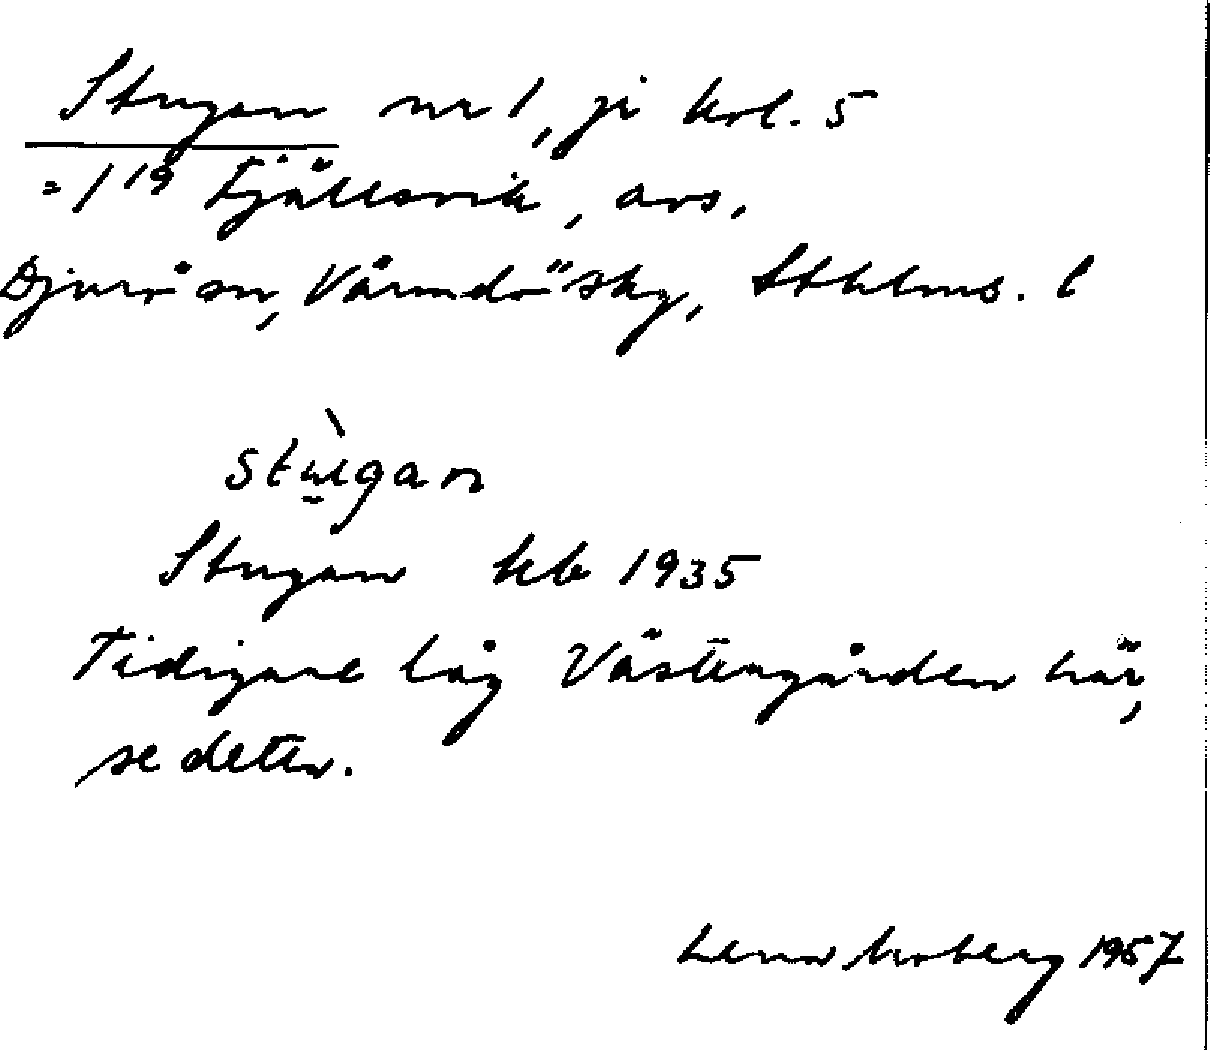 Stugan nr 1, ji kol. 5
= 1¹⁹ Fjällsvik, avs,
Djurö sn, Värmdö skg, Sthlms. l
stùgan
Stugan kb 1935
Tidigare låg Västergården här,
se detta.
Lena Moberg 1957